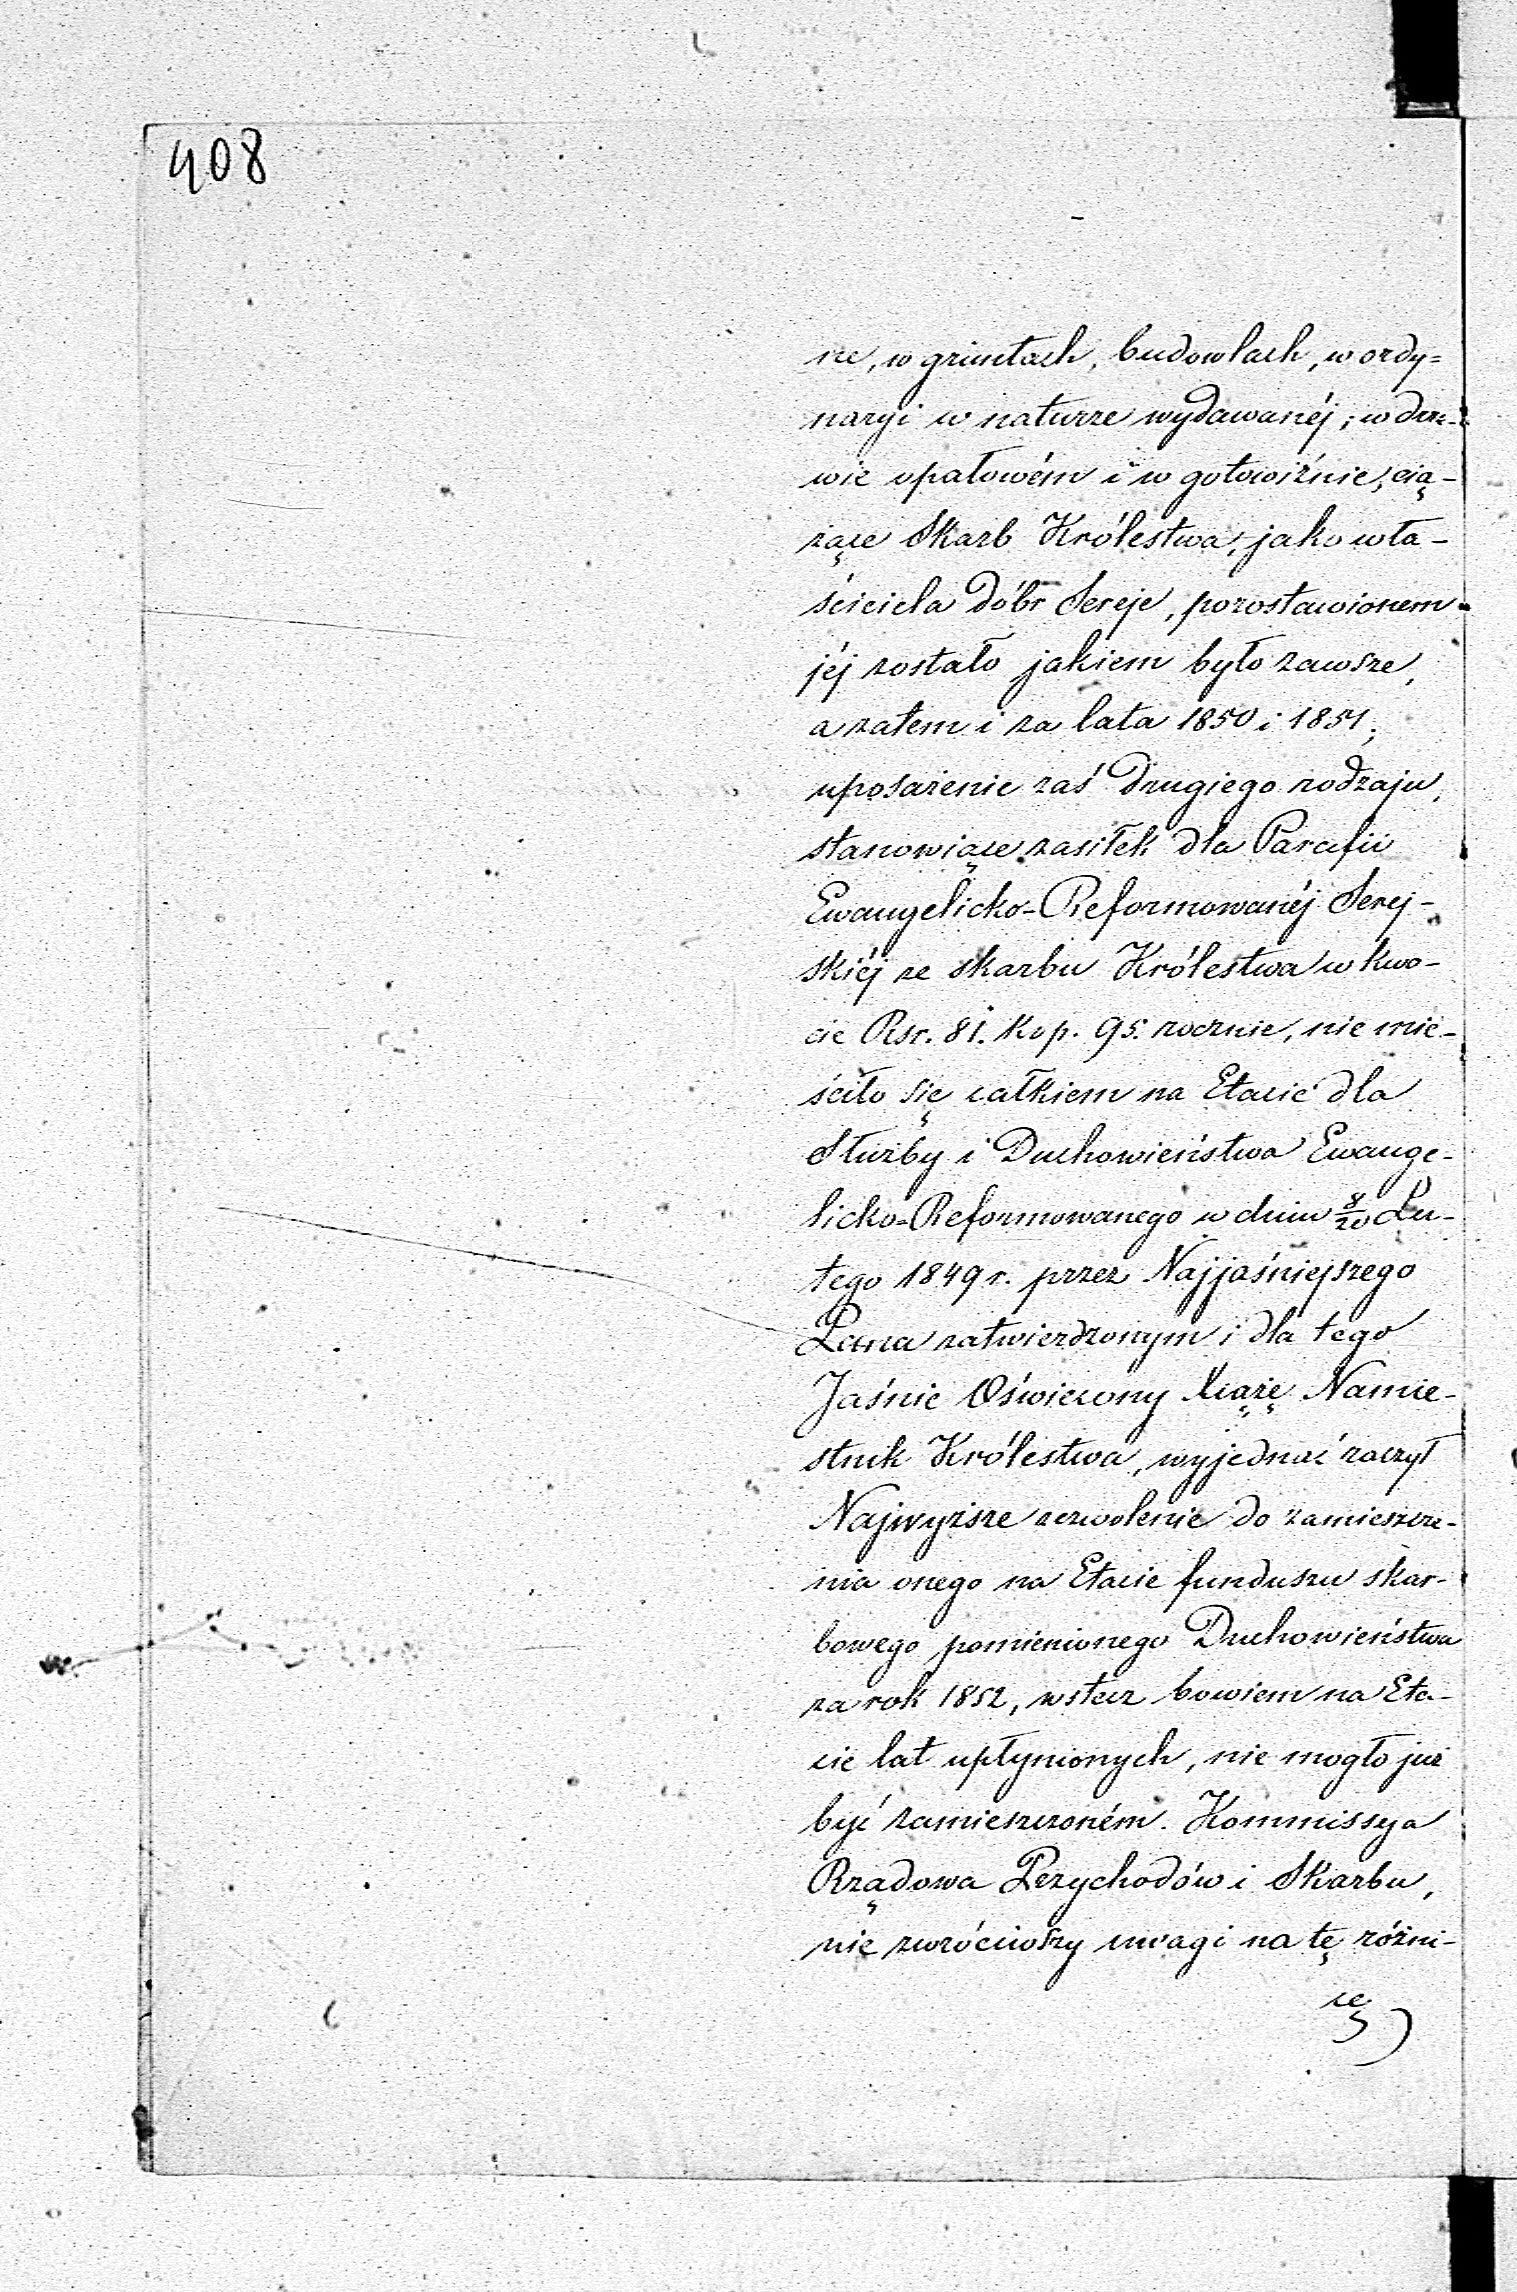 408
ne, w gruntach, budowlach, w ordy=
naryi w naturze wydawanéj, w drze-
wie opałowém i w gotowiźnie, cią-
żące Skarb Królestwa, jako wła-
ściciela dóbr Sereje, pozostawionem
jéj zostało jakiem było zawsze,
a zatem i za lata 1850 i 1851;
uposażenie zaś drugiego rodzaju,
stanowiące zasiłek dla Parafii
Ewangelicko-Reformowanéj Serej-
skiéj ze skarbu Królestwa w kwo-
cie Rsr. 81. Kop. 95. rocznie, nie mie-
ściło się całkiem na Etacie dla
Służby i Duchowieństwa Ewange-
licko-Reformowanego w dniu 8/20 Lu-
tego 1849 r. przez Najjaśniejszego
Pana zatwierdzonym i dla tego
Jaśnie Oświecony Xiążę Namie-
stnik Królestwa, wyjednać raczył
Najwyższe zezwolenie do zamieszcze-
nia onego na Etacie funduszu skar-
bowego pomienionego Duchowieństwa
za rok 1852, wstecz bowiem na Eta-
cie lat upłynionych, nie mogło już
być zamieszczoném. Kommissya
Rządowa Przychodów i Skarbu,
nie zwróciwszy uwagi na tę różni-
cę